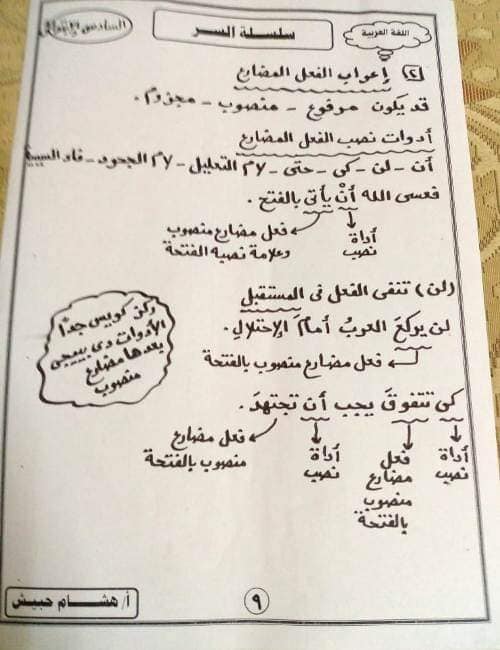 اللغة العربية
سلسلة السر
السادس الابتدائى
(٢) إعراب الفعل المضارع
قد يكون مرفوع - منصوب - مجزوم.
أدوات نصب الفعل المضارع
أن - لن - كى - حتى - لام التعليل - لام الجحود - فاء السببية
فعسى الله أنْ يأتى بالفتح.
أداة نصب
فعل مضارع منصوب
وعلامة نصبه الفتحة
(لن) تنفى الفعل فى المستقبل
لن يركعَ العربُ أمامَ الإحتلالِ.
فعل مضارع منصوب بالفتحة
ركن كويس جدًا
الأدوات دى بييجى
بعدها مضارع
منصوب
كى تتفوقَ يجب أن تجتهدَ.
أداة نصب
فعل مضارع منصوب بالفتحة
أداة نصب
فعل مضارع
منصوب بالفتحة
أ/ هشام حبيش
٩